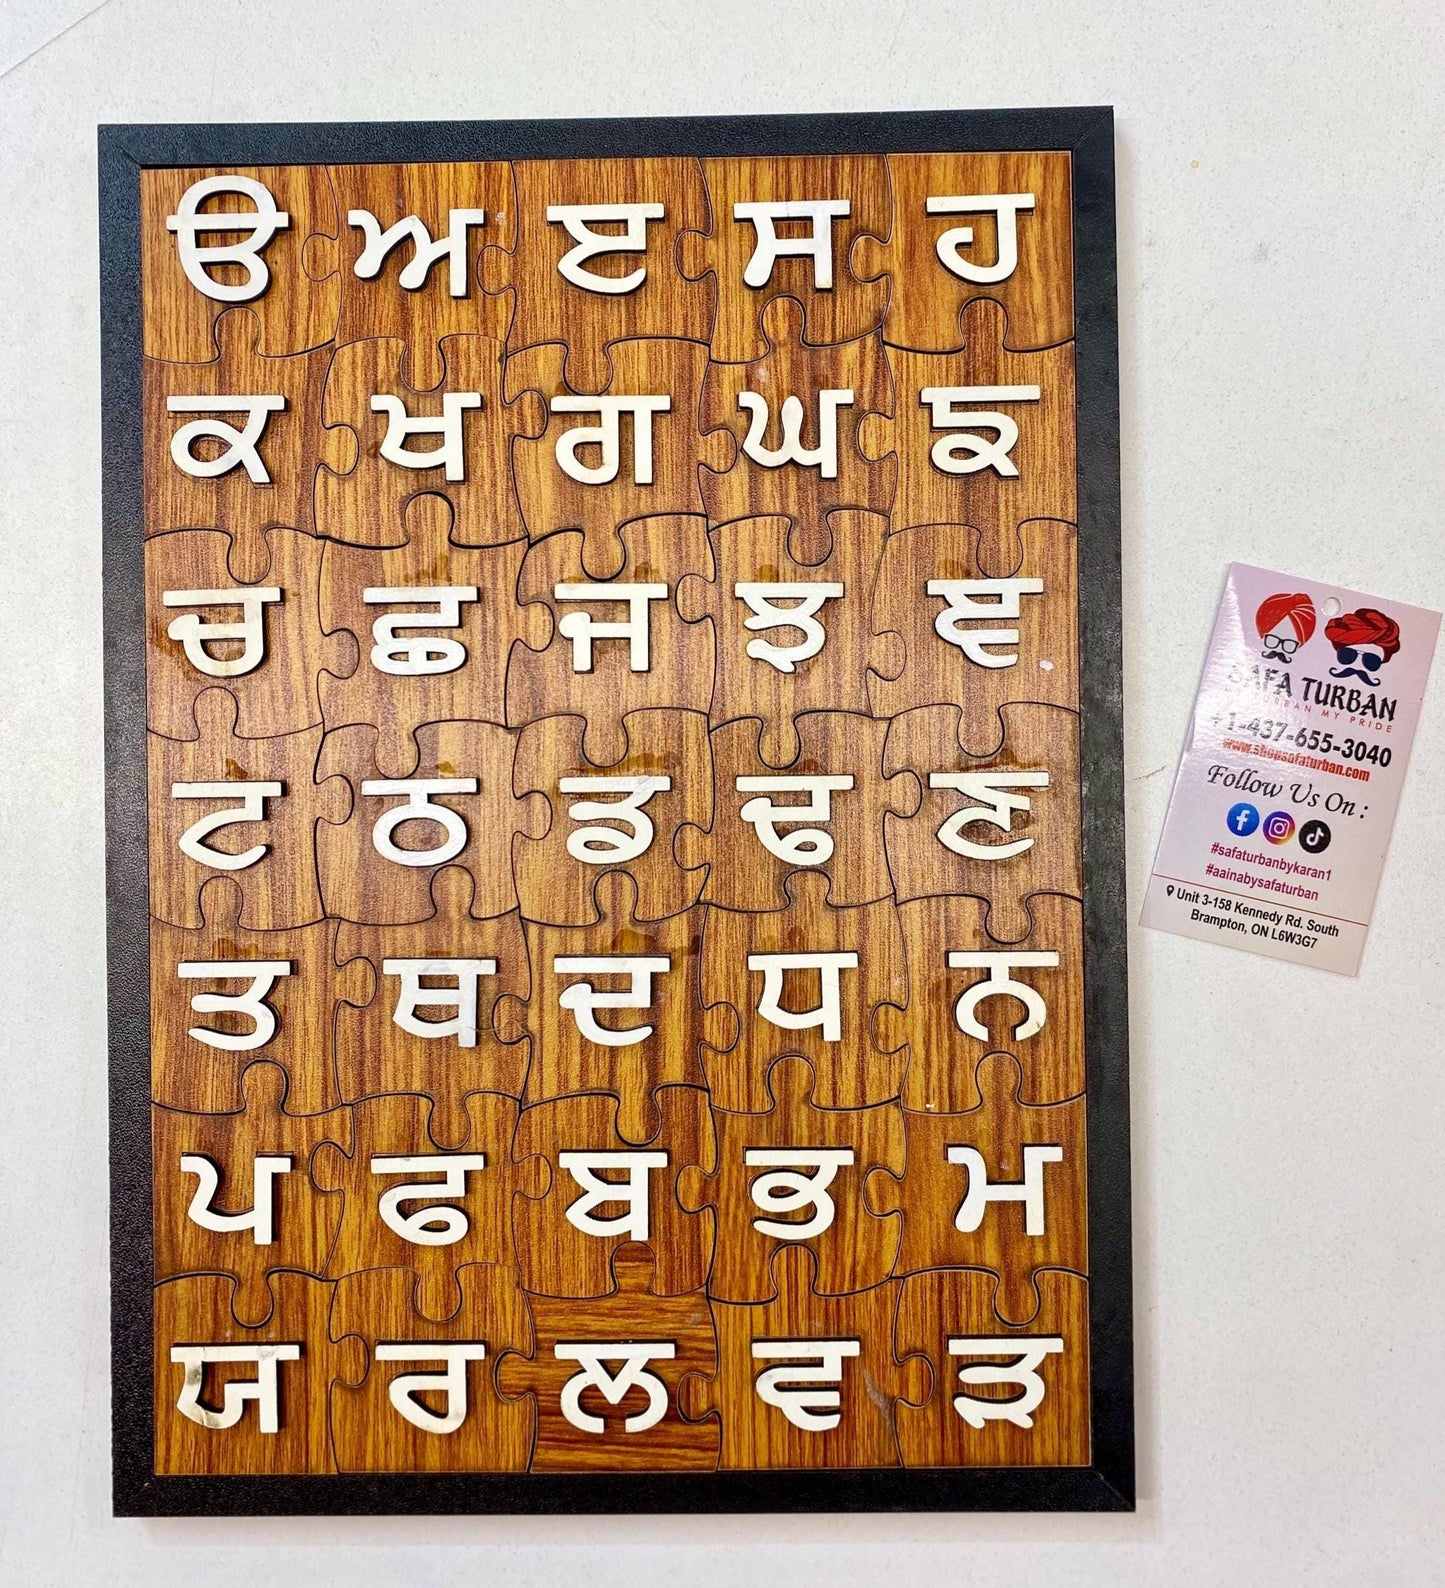 ੳ ਅ ੲ ਸ ਹ
ਕ ਖ ਗ ਘ ਙ
ਚ ਛ ਜ ਝ ਞ
ਟ ਠ ਡ ਢ ਣ
ਤ ਥ ਦ ਧ ਨ
ਪ ਫ ਬ ਭ ਮ
ਯ ਰ ਲ ਵ ੜ
SAFA TURBAN
MY PRIDE
+1-437-655-3040
www.shopsafaturban.com
Follow Us On :
#safaturbanbykaran1
#aainabysafaturban
Unit 3-158 Kennedy Rd. South
Brampton, ON L6W3G7